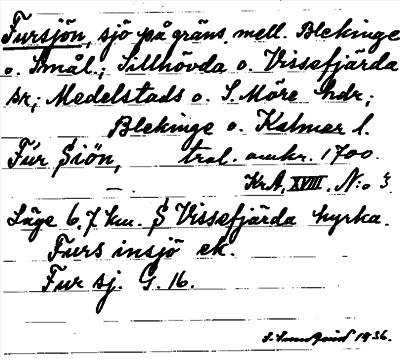 Fursjön, sjö på gräns. mell. Blekinge
o. Smål.; Sillhövda o. Vissefjärda
sr; Medelstads o. S. Möre hdr;
Blekinge o. Kalmar l.
Fúr Siön, trol. omkr. 1700.
KrA, XVIII. N:o 3
Läge 6,7 km. S Vissefjärda kyrka.
Furs insjö ek.
Fur sj. G. 16.
1936.